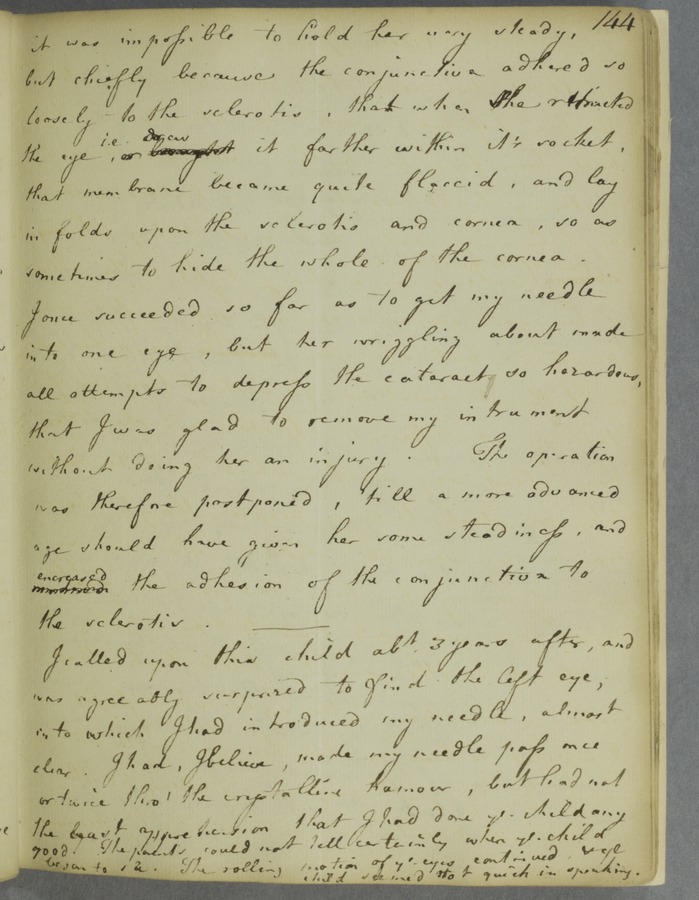 144
it was impossible to hold her very steady,
but chiefly because the conjunctiva adhered so
loosely to the sclerotis, that when she retracted
the eye, i.e. drew it farther within it's socket,
that membrane became quite flaccid, and lay
in folds upon the sclerotis and cornea, so as
sometimes to hide the whole of the cornea.
I once succeeded so far as to get my needle
into one eye, but her wriggling about made
all attempts to depress the cataract so hazardous,
that I was glad to remove my intrument
without doing her an injury. The operation
was therefore postponed, 'till a more advanced
age should have given her some steadiness, and
encreased the adhesion of the conjunctiva to
the sclerotis.
I called upon this child abt. 3 years after, and
was agreeably surprized to find the left eye,
into which I had introduced my needle, almost
clear. I had, I believe, made my needle pass once
or twice thro' the crystalline humour, but had not
the least apprehension that I had done ye. child any
good. The parents could not tell certainly when ye. child
began to see. The rolling motion of ye. eyes continued.
child seemed not quick in speaking.